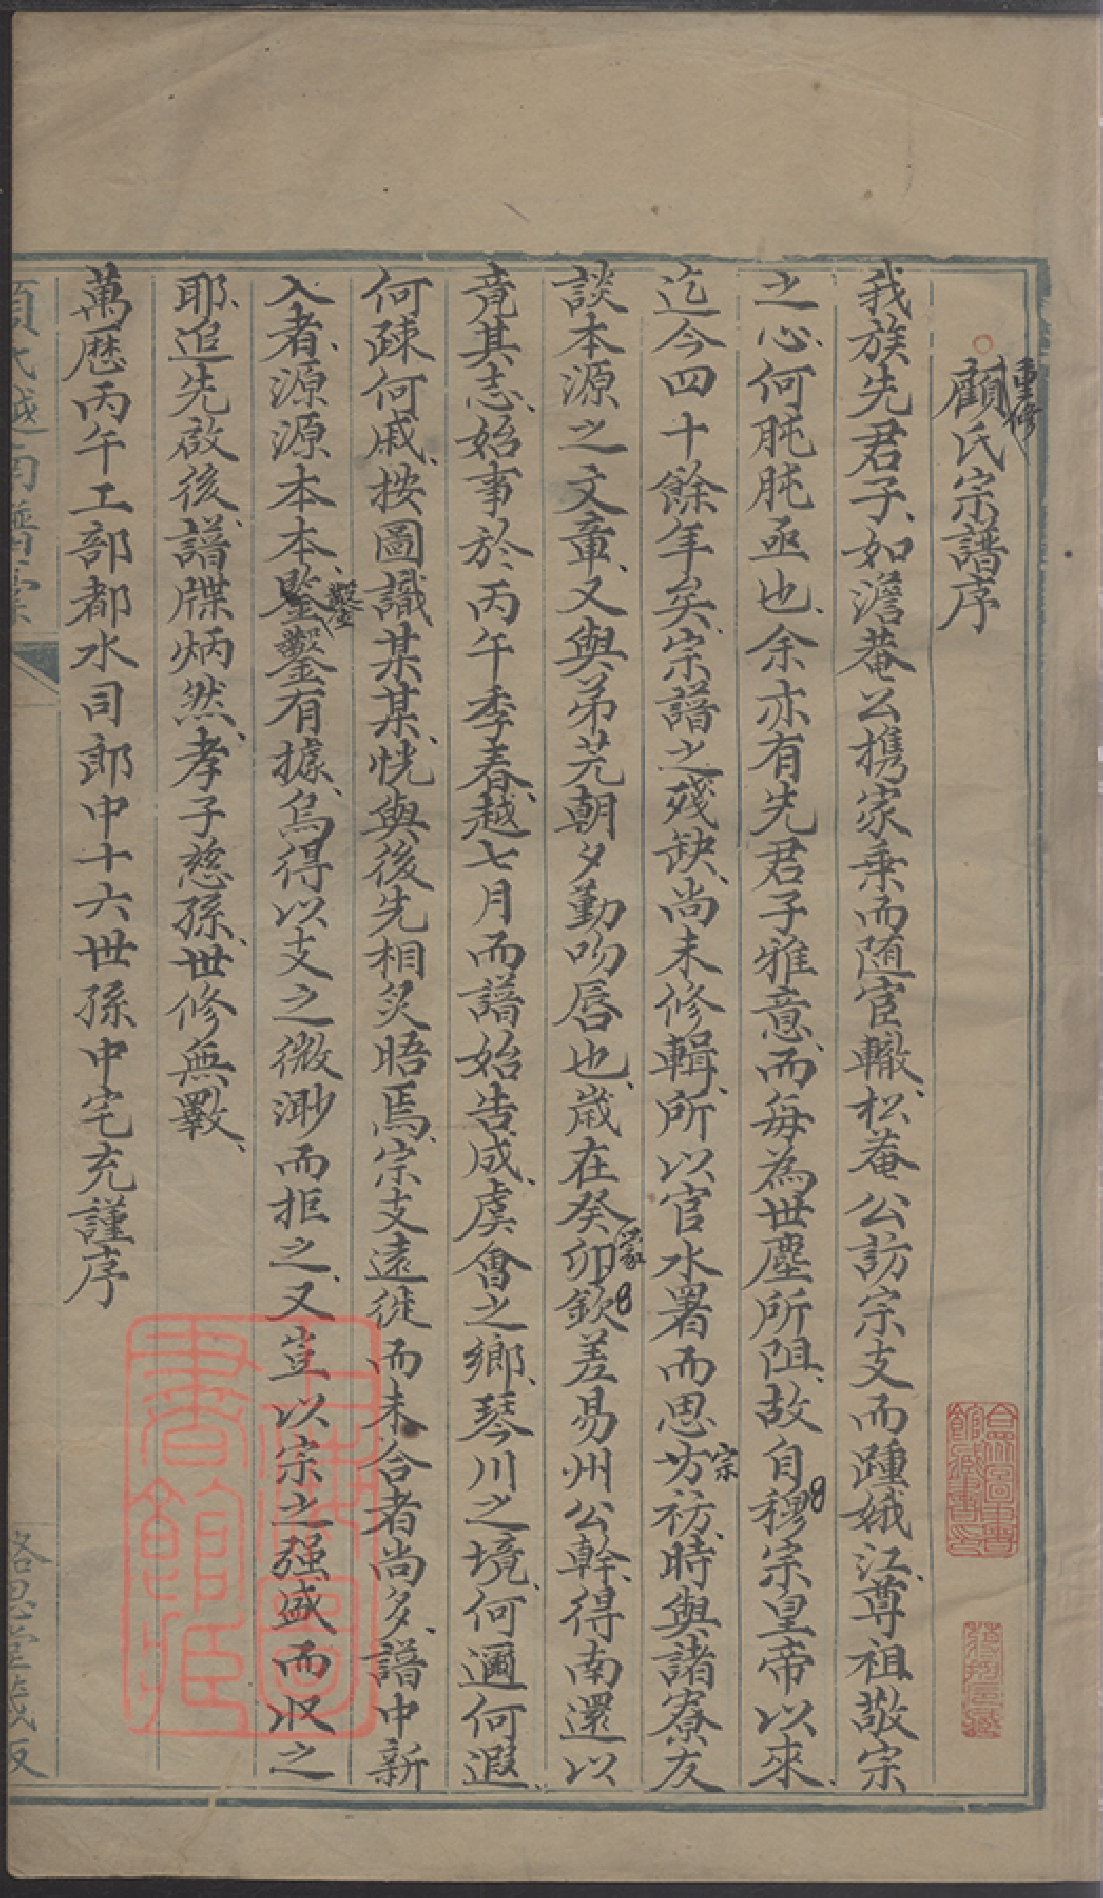 重修
顧氏宗譜序
我族先君子、如澹菴公携家乘而随宦轍、松菴公訪宗支而踵娥江、尊祖敬宗
之心、何肫肫亟也、余亦有先君子雅意、而每為世塵所阻、故自穆宗皇帝以來、
迄今四十餘年矣、宗譜之殘缺、尚未修輯、所以官水署而思宗祊、時與諸寮友
談本源之文章、又與弟芫朝夕勤吻唇也、歲在癸卯蒙欽差易州公幹、得南還以
竟其志、始事於丙午季春、越七月而譜始告成、虞會之鄉、琴川之境、何邇何遐、
何疎何戚、按圖識某某、恍與後先相炙晤焉、宗支遠徙而未合者尚多、譜中新
入者、源源本本、鑿鑿有據、烏得以支之微渺而拒之、又豈以宗之强盛而収之
耶、追先啟後、譜牒炳然、孝子慈孫、世修無斁、
萬歷丙午工部都水司郎中十六世孫中宅充謹序
顧氏越南譜稾
上海圖書館藏